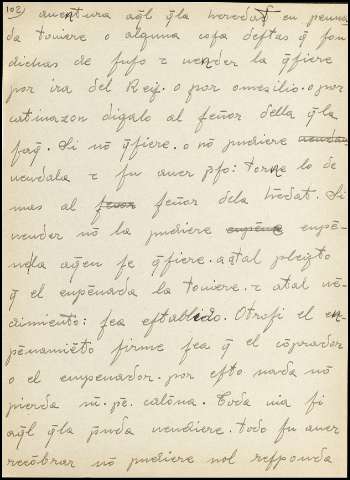 102) auentura aq̃l q̃la heredat en penna-
da touiere o alguna cosa destas q̃ son
dichas de suso z uender la q̃siere
por ira del Rey. o por omezilio. o por
catiuazon digalo al señor della q̃la
faq̃. Si nō q̃siere. o nō pudiere
uendala z su auer pso: torne lo de
mas al señor dela h̃edat. Si
uender nō la pudiere enpē-
nela aq̃en se q̃siere. a tal pleyto
q̃ el enpēnada la touiere. z atal uē-
dimiēto: sea establido. Otrosi el en-
pēnamiēto firme sea q̃ el cōprador
o el empenador. por esto nada nō
pierda nī. pē. calōna. Toda uia si
aq̃l q̃la pñda uendiere. todo su auer
recōbrar nō pudiere nol responda